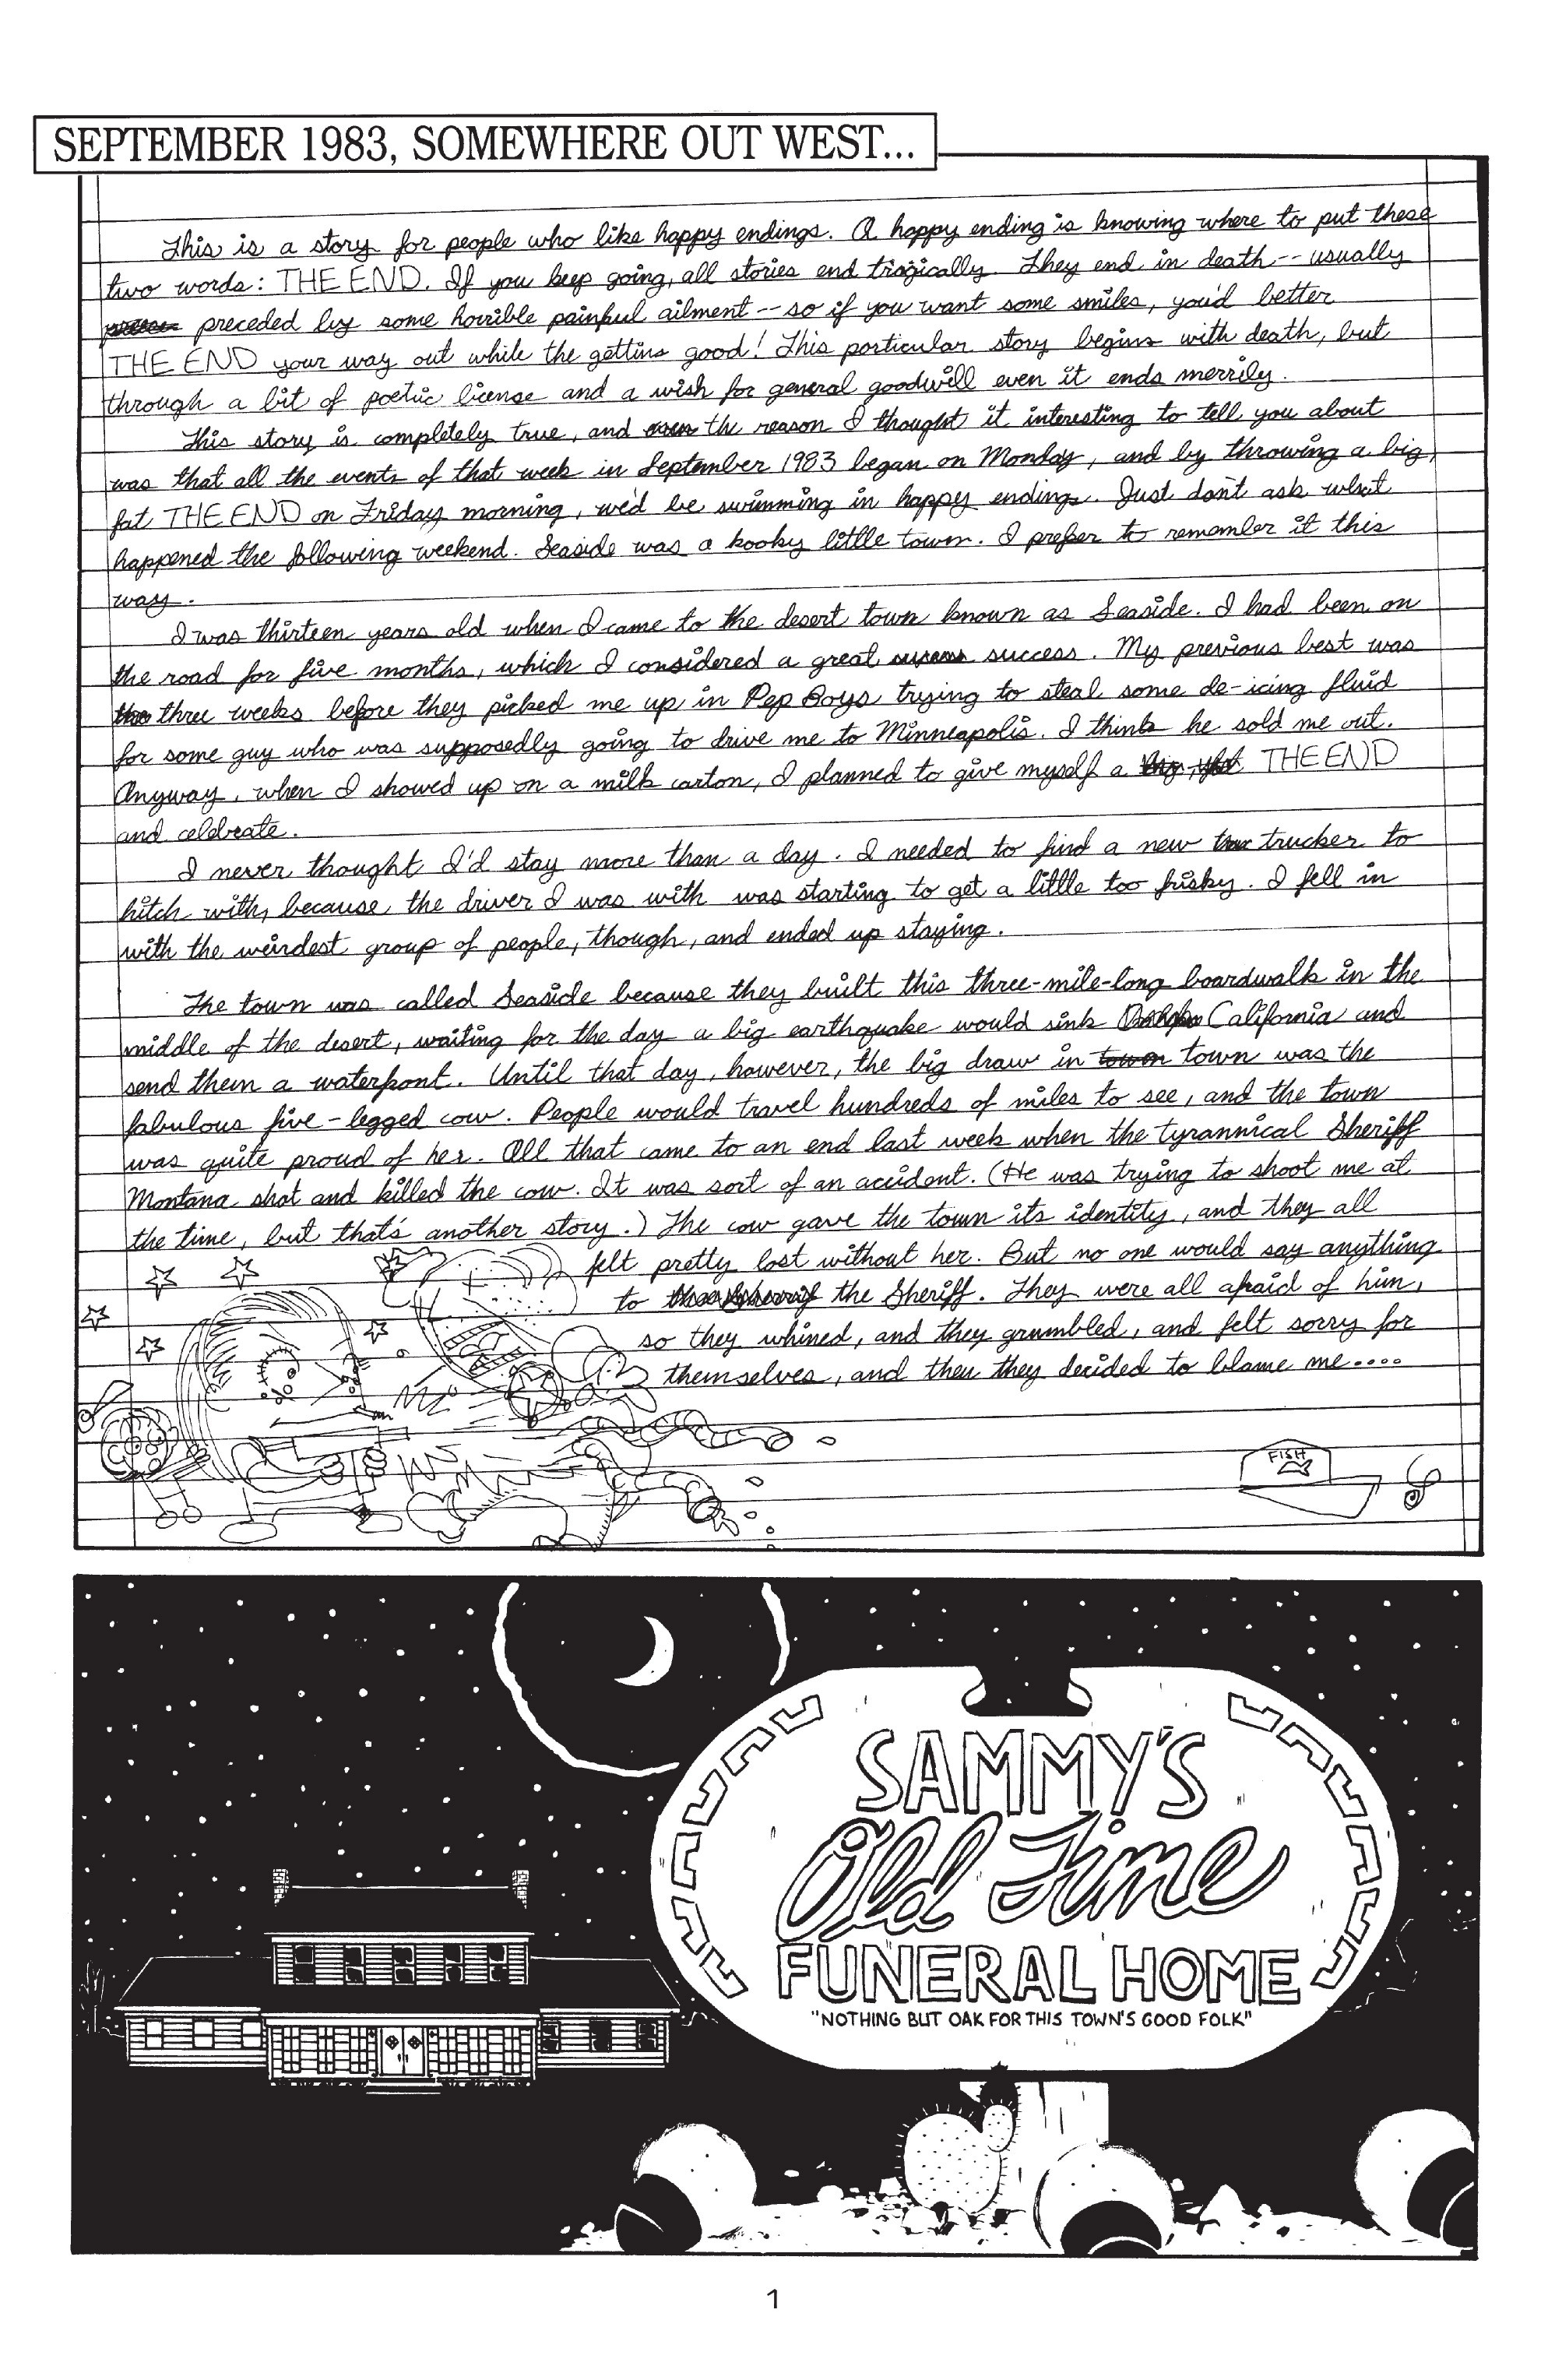 SEPTEMBER 1983, SOMEWHERE OUT WEST...
This is a story for people who like happy endings. A happy ending is knowing where to put these
two words: THE END. If you keep going, all stories end tragically. They end in death -- usually
preceded by some horrible painful ailment -- so if you want some smiles, you'd better
THE END your way out while the gettins good! This particular story begins with death, but
through a bit of poetic license and a wish for general goodwill even it ends merrily.
This story is completely true, and the reason I thought it interesting to tell you about
was that all the events of that week in September 1983 began on Monday, and by throwing a big,
fat THE END on Friday morning, we'd be swimming in happy endings. Just don't ask what
happened the following weekend. Seaside was a kooky little town. I prefer to remember it this
way.
I was thirteen years old when I came to the desert town known as Seaside. I had been on
the road for five months, which I considered a great success. My previous best was
three weeks before they picked me up in Pep Boys trying to steal some de-icing fluid
for some guy who was supposedly going to drive me to Minneapolis. I think he sold me out.
Anyway, when I showed up on a milk carton, I planned to give myself a THE END
and celebrate.
I never thought I'd stay more than a day. I needed to find a new trucker to
hitch with, because the driver I was with was starting to get a little too frisky. I fell in
with the weirdest group of people, though, and ended up staying.
The town was called Seaside because they built this three-mile-long boardwalk in the
middle of the desert, waiting for the day a big earthquake would sink California and
send them a waterfront. Until that day, however, the big draw in town was the
fabulous five-legged cow. People would travel hundreds of miles to see, and the town
was quite proud of her. All that came to an end last week when the tyrannical Sheriff
Montana shot and killed the cow. It was sort of an accident. (He was trying to shoot me at
the time, but that's another story.) The cow gave the town its identity, and they all
felt pretty lost without her. But no one would say anything
to the Sheriff. They were all afraid of him,
so they whined, and they grumbled, and felt sorry for
themselves, and then they decided to blame me....
FISH
SAMMY'S
Old Time
FUNERAL HOME
"NOTHING BUT OAK FOR THIS TOWN'S GOOD FOLK"
1